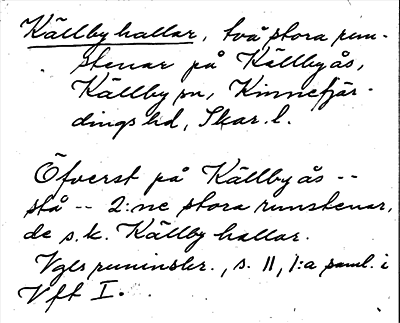 Källby hallar, två stora run-
stenar på Källbyås,
Källby sn, Kinnefjär-
dings hd, Skar. l.
Öfverst på Källby ås --
stå -- 2:ne stora runstenar,
de s.k. Källby hallar.
Vgls runinskr., s. 11, 1:a saml. i
Vft I.